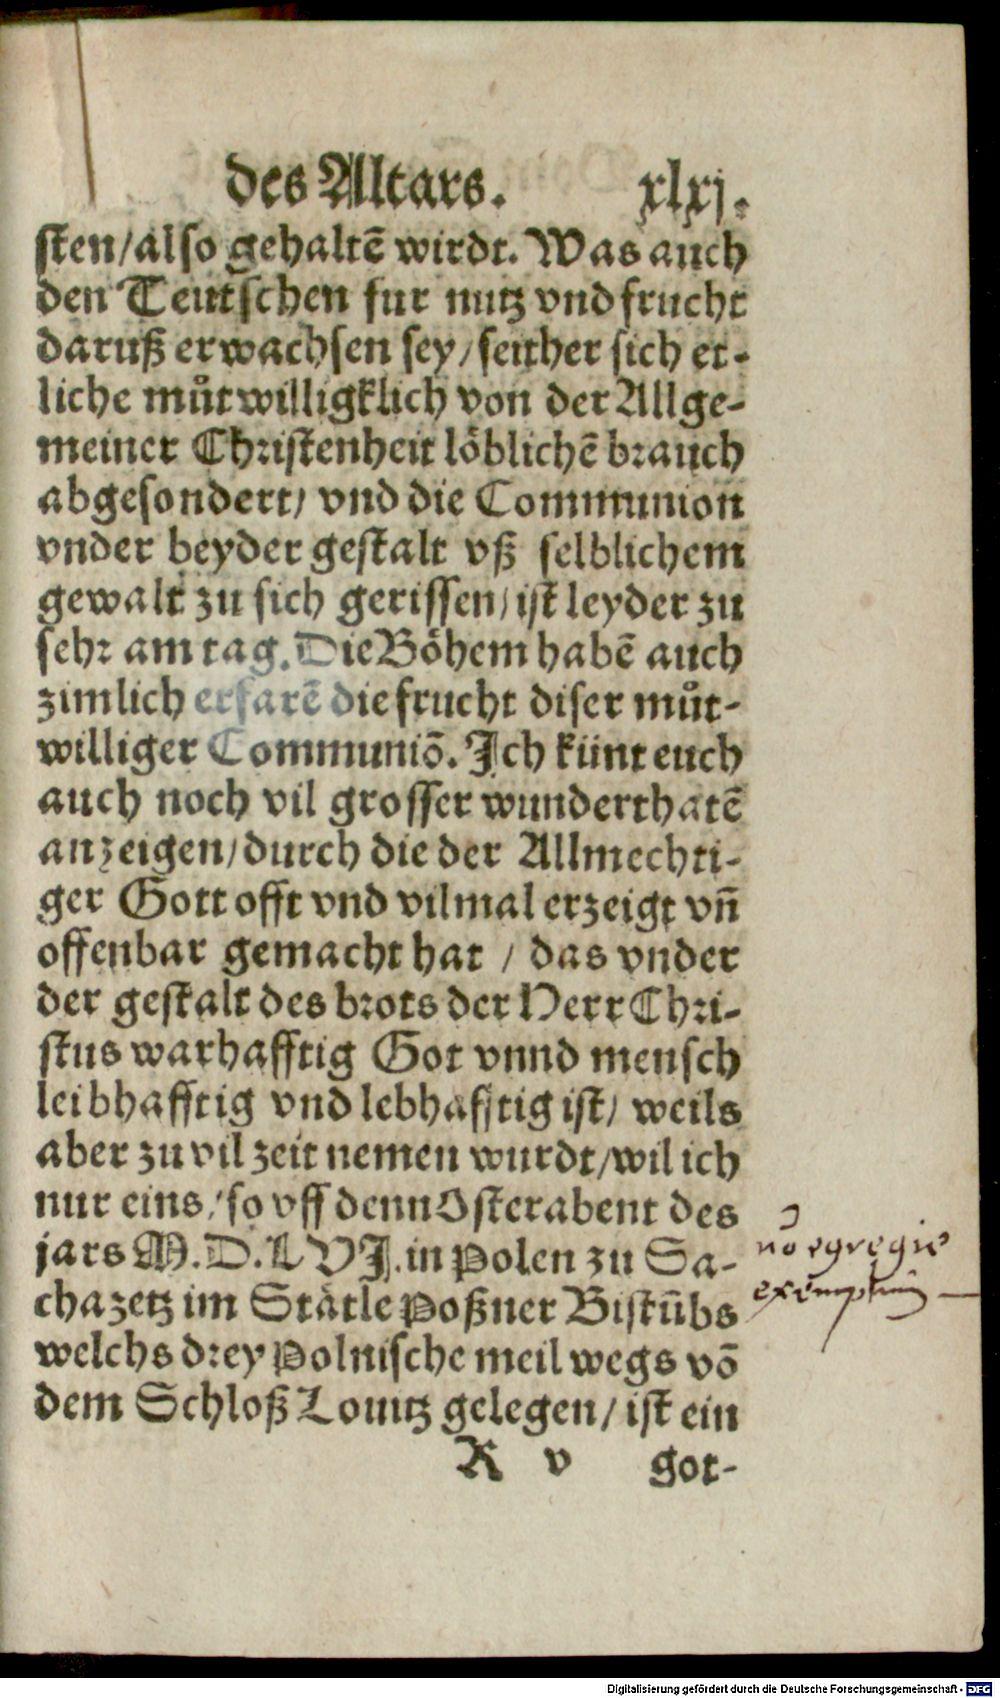 des Altars. xlxj.
sten/also gehaltē wirdt. Was auch
den Teutschen fur nutz vnd frucht
daruß erwachsen sey/seither sich et-
liche můtwilligklich von der Allge-
meiner Christenheit löblichē brauch
abgesondert/ vnd die Communion
vnder beyder gestalt vß selblichem
gewalt zu sich gerissen/ist leyder zu
sehr am tag. Die Böhem habē auch
zimlich erfarē die frucht diser můt-
williger Communiō. Ich künt euch
auch noch vil grosser wunderthatē
anzeigen/durch die der Allmechti-
ger Gott offt vnd vilmal erzeigt vn̄
offenbar gemacht hat / das vnder
der gestalt des brots der Herr Chri-
stus warhafftig Got vnnd mensch
leibhafftig vnd lebhafftig ist/ weils
aber zu vil zeit nemen wurdt/wil ich
nur eins/so vff denn Osterabent des
jars M.D.LVJ.in Polen zu Sa-
chazetz im Stätle Poßner Bistūbs
welchs drey Polnische meil wegs vō
dem Schloß Louitz gelegen/ ist ein
R v got-
nō egregie
exemplum
Digitalisierung gefördert durch die Deutsche Forschungsgemeinschaft - DFG